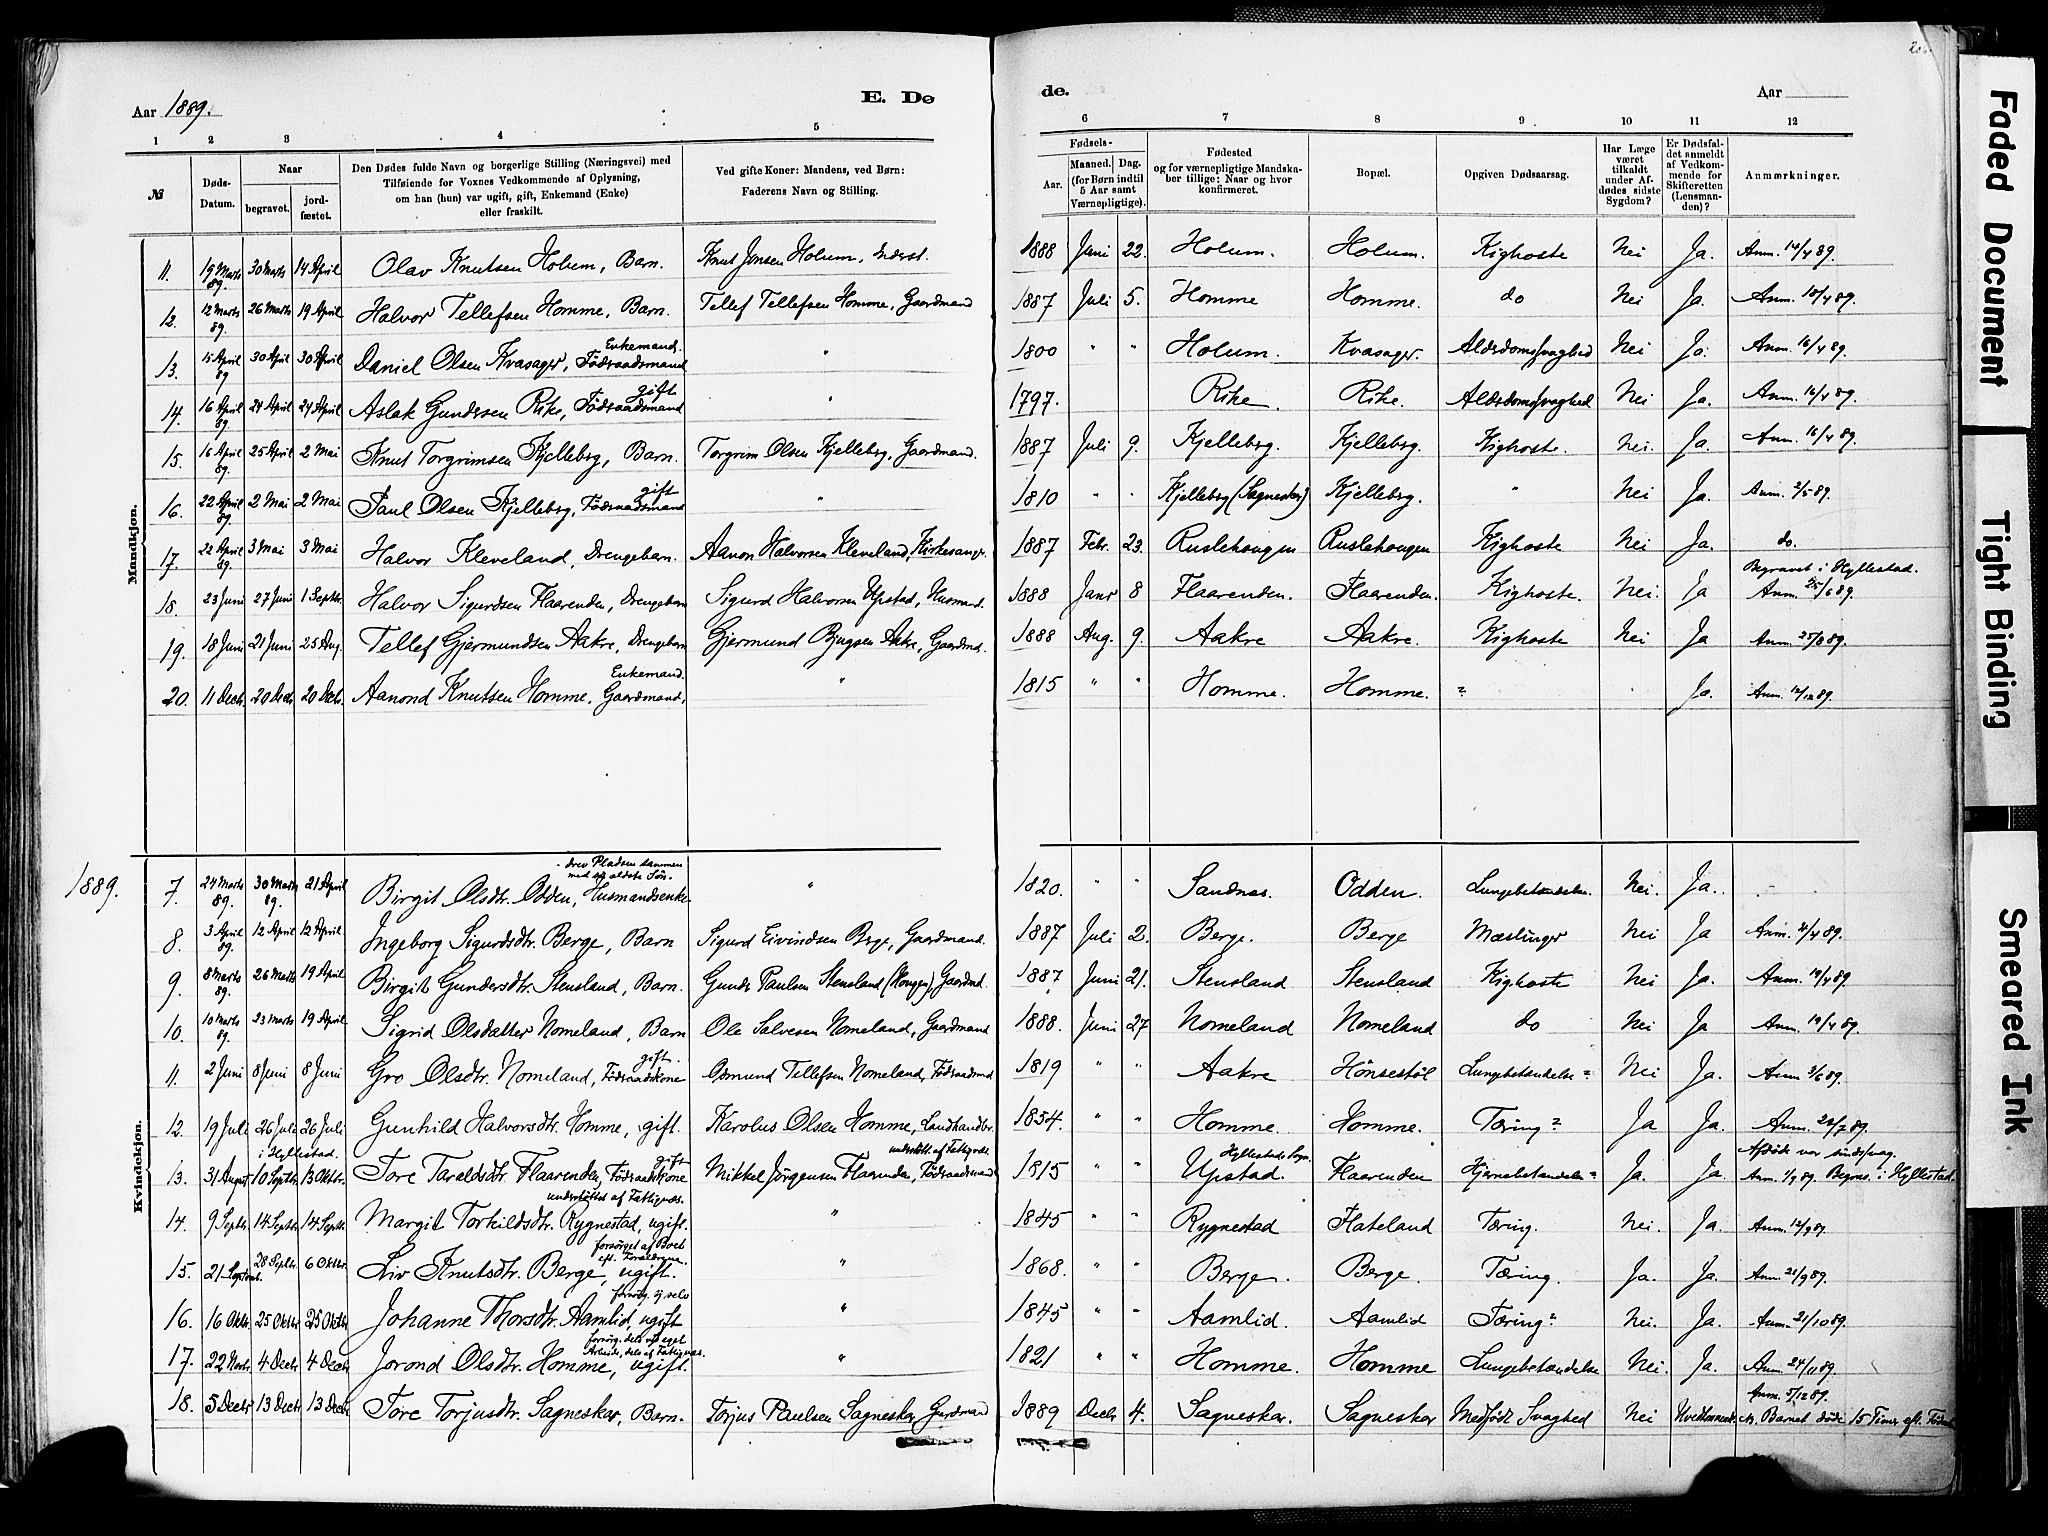 Aar 1889.
E. Dø
de.
Aar
1 2 3 4 5 6 7 8 9 10 11 12
№ | Døds-Datum. | Naar begravet. | jord-fæstet. | Den Dødes fulde Navn og borgerlige Stilling (Næringsvei) med Tilføiende for Voxnes Vedkommende af Oplysning, om han (hun) var ugift, gift, Enkemand (Enke) eller fraskilt. | Ved gifte Koner: Mandens, ved Børn: Faderens Navn og Stilling. | Fødsels- Aar. | Maaned. Dag. (for Børn indtil 5 Aar samt Værnepligtige). | Fødested og for værnepligtige Mandskaber tillige: Naar og hvor konfirmeret. | Bopæl. | Opgiven Dødsaarsag. | Har Læge været tilkaldt under Afdødes sidste Sygdom? | Er Dødsfaldet anmeldt af Vedkommende for Skifteretten (Lensmanden)? | Anmærkninger.
Mandkjøn.
11. 19 Marts 89. 30 Marts 14 April Olav Knutsen Holum, Barn. Knut Jonsen Holum, 1888 Juni 22. Holum. Holum. Kighoste Nei Ja. Anm. 14/4 89.
12. 12 Marts 89. 26 Marts 19 April Halvor Tellefsen Homme, Barn. Tellef Tellefsen Homme, Gaardmand 1887 Juli 5. Homme Homme. do Nei Ja. Anm. 18/4 89.
13. 15 April 89 30 April 30 April Daniel Olsen Kvasager, Enkemand. Föderaadsmand " 1800 " " Holum. Kvasager. Alderdomssvaghed Nei Ja. Anm. 16/4 89.
14. 16 April 89. 24 April 24 April Aslak Gundersen Rike, gift Föderaadsmand " 1797. Rike. Rike. Alderdomssvaghed Nei Ja. Anm. 16/4 89.
15. 16 April 89. 25 April 2 Mai Knut Torgrimsen Kjelleberg, Barn. Torgrim Olsen Kjelleberg, Gaardmand. 1887 Juli 9. Kjelleberg. Kjelleberg. Kighoste. Nei. Ja. Anm. 16/4 89.
16. 22 April 89. 2 Mai 2 Mai Paul Olsen Kjelleberg, gift Föderaadsmand " 1810 " " Kjelleberg (Sagneskar) Kjelleberg. " Nei Ja. Anm. 2/5 89.
17. 22 April 89. 3 Mai 3 Mai Halvor Kleveland, Drengebarn. Aanon Halvorsen Kleveland, Kirkesanger. 1887 Febr. 23. Ruslehougen Ruslehougen Kighoste Nei Ja. do.
18. 23 Juni 27 Juni 1 Septbr. Halvor Sigurdsen Flaarenden, Drengebarn Sigurd Halvorsen Upstad, Husmand. 1888 Janr 8 Flaarenden. Flaarenden. Kighoste. Nei. Ja Begravet i Hyllestad. Anm. 25/6 89.
19. 18 Juni 21 Juni 25 Aug. Tellef Gjermundsen Aakre, Drengebarn Gjermund Bjugsen Aakre, Gaardmd. 1888 Aug. 9. Aakre Aakre. Kighoste Nei Ja Anm. 25/8 89.
20. 11 Decbr. 20 Decbr 20 Decbr. Aanond Knutsen Homme, Enkemand. Gaardmand, " 1815 " " Homme. Homme. ? Ja. Anm. 12/12 89.
1889.
Kvindekjøn.
7. 24 Marts 89. 30 Marts 89. 21 April Birgit Olsdtr. Odden, Husmandsenke. - drev Pladsen sammen med sin ældste Søn. " 1820. " " Sandnes. Odden. Lungebetændelse. Nei. Ja.
8. 3 April 89. 12 April 12 April Ingeborg Sigurdsdtr. Berge, Barn Sigurd Eivindsen Berge, Gaardmand. 1887 Juli 2. Berge. Berge Mæslinger Nei Ja Anm. 2/4 89.
9. 8 Marts 89. 26 Marts 19 April Birgit Gundersdtr. Stensland, Barn. Gunder Paulsen Stensland (Hougen), Gaardmd. 1887 Juni 21. Stensland Stensland Kighoste Nei Ja. Anm. 19/4 89.
10. 10 Marts 89. 23 Marts 19 April Sigrid Olsdatter Nomeland, Barn Ole Salvesen Nomeland, Gaardmand 1888. Juni 27 Nomeland Nomeland do Nei Ja Anm. 19/4 89.
11. 2 Juni 8 Juni 8 Juni Gro Olsdtr. Nomeland, gift. Föderaadskone Osmund Tellefsen Nomeland, Föderaadsmd 1819 " " Aakre Hönsestöl Lungebetændelse? Nei Ja. Anm 3/6 89.
12. 19 Juli 26 Juli 26 Juli Gunhild Halvorsdtr. Homme, gift. Karolus Olsen Homme, Landhandler. 1854. " " Homme. Homme. Tæring? Ja Ja. Anm. 22/7 89.
13. 31 August i Hyllestad. 10 Septbr. 13 Oktbr. Tore Taraldsdtr. Flaarenden, gift Föderaadskone Mikkel Jörgensen Flaarenden, Föderaadsmand understött. af Fattigvæs. 1815 " " Hyllestads Sogn. Upstad. Flaarenden Hjernebetændelse? Ja. Ja Afdøde var sindssvag. Anm. 1/9 89. Begrav. i Hyllestad.
14. 9 Septbr. 14 Septbr. 14 Septbr. Margit Torkildsdtr. Rygnestad, ugift. understöttet af Fattigvæs. " 1845 " " Rygnestad Flateland Tæring. Nei. Ja. Anm. 12/9 89.
15. 21 Septemb. 28 Septbr. 6 Oktbr. Liv Knutsdtr. Berge, ugift. forsörget af Boet eft. Forældrene. " 1868. " " Berge. Berge. Tæring. Ja. Ja. Anm. 21/9 89.
16. 16 Oktbr. 25 Oktbr 25 Oktbr Johanne Thorsdtr. Aamlid, ugift forsörg. sig selv " 1845 " " Aamlid. Aamlid Tæring? Nei. Ja. Anm. 21/10 89.
17. 22 Novbr. 4 Decbr 4 Decbr Jorond Olsdtr. Homme, ugift. forsörg. dels ved eget Arbeide, dels af Fattigvæs. " 1821 " " Homme. Homme Lungebetændelse Nei. Ja. Anm. 24/11 89.
18. 5 Decbr 13 Decbr 13 Decbr Tore Torjusdtr. Sagneskar, Barn. Torjus Paulsen Sagneskar, Gardmand 1889 Decbr 4. Sagneskar. Sagneskar Medfödt Svaghed Nei Anm. 5/12 89. Barnet døde 15 Timer eft. Födselen
Faded Document
Tight Binding
Smeared Ink